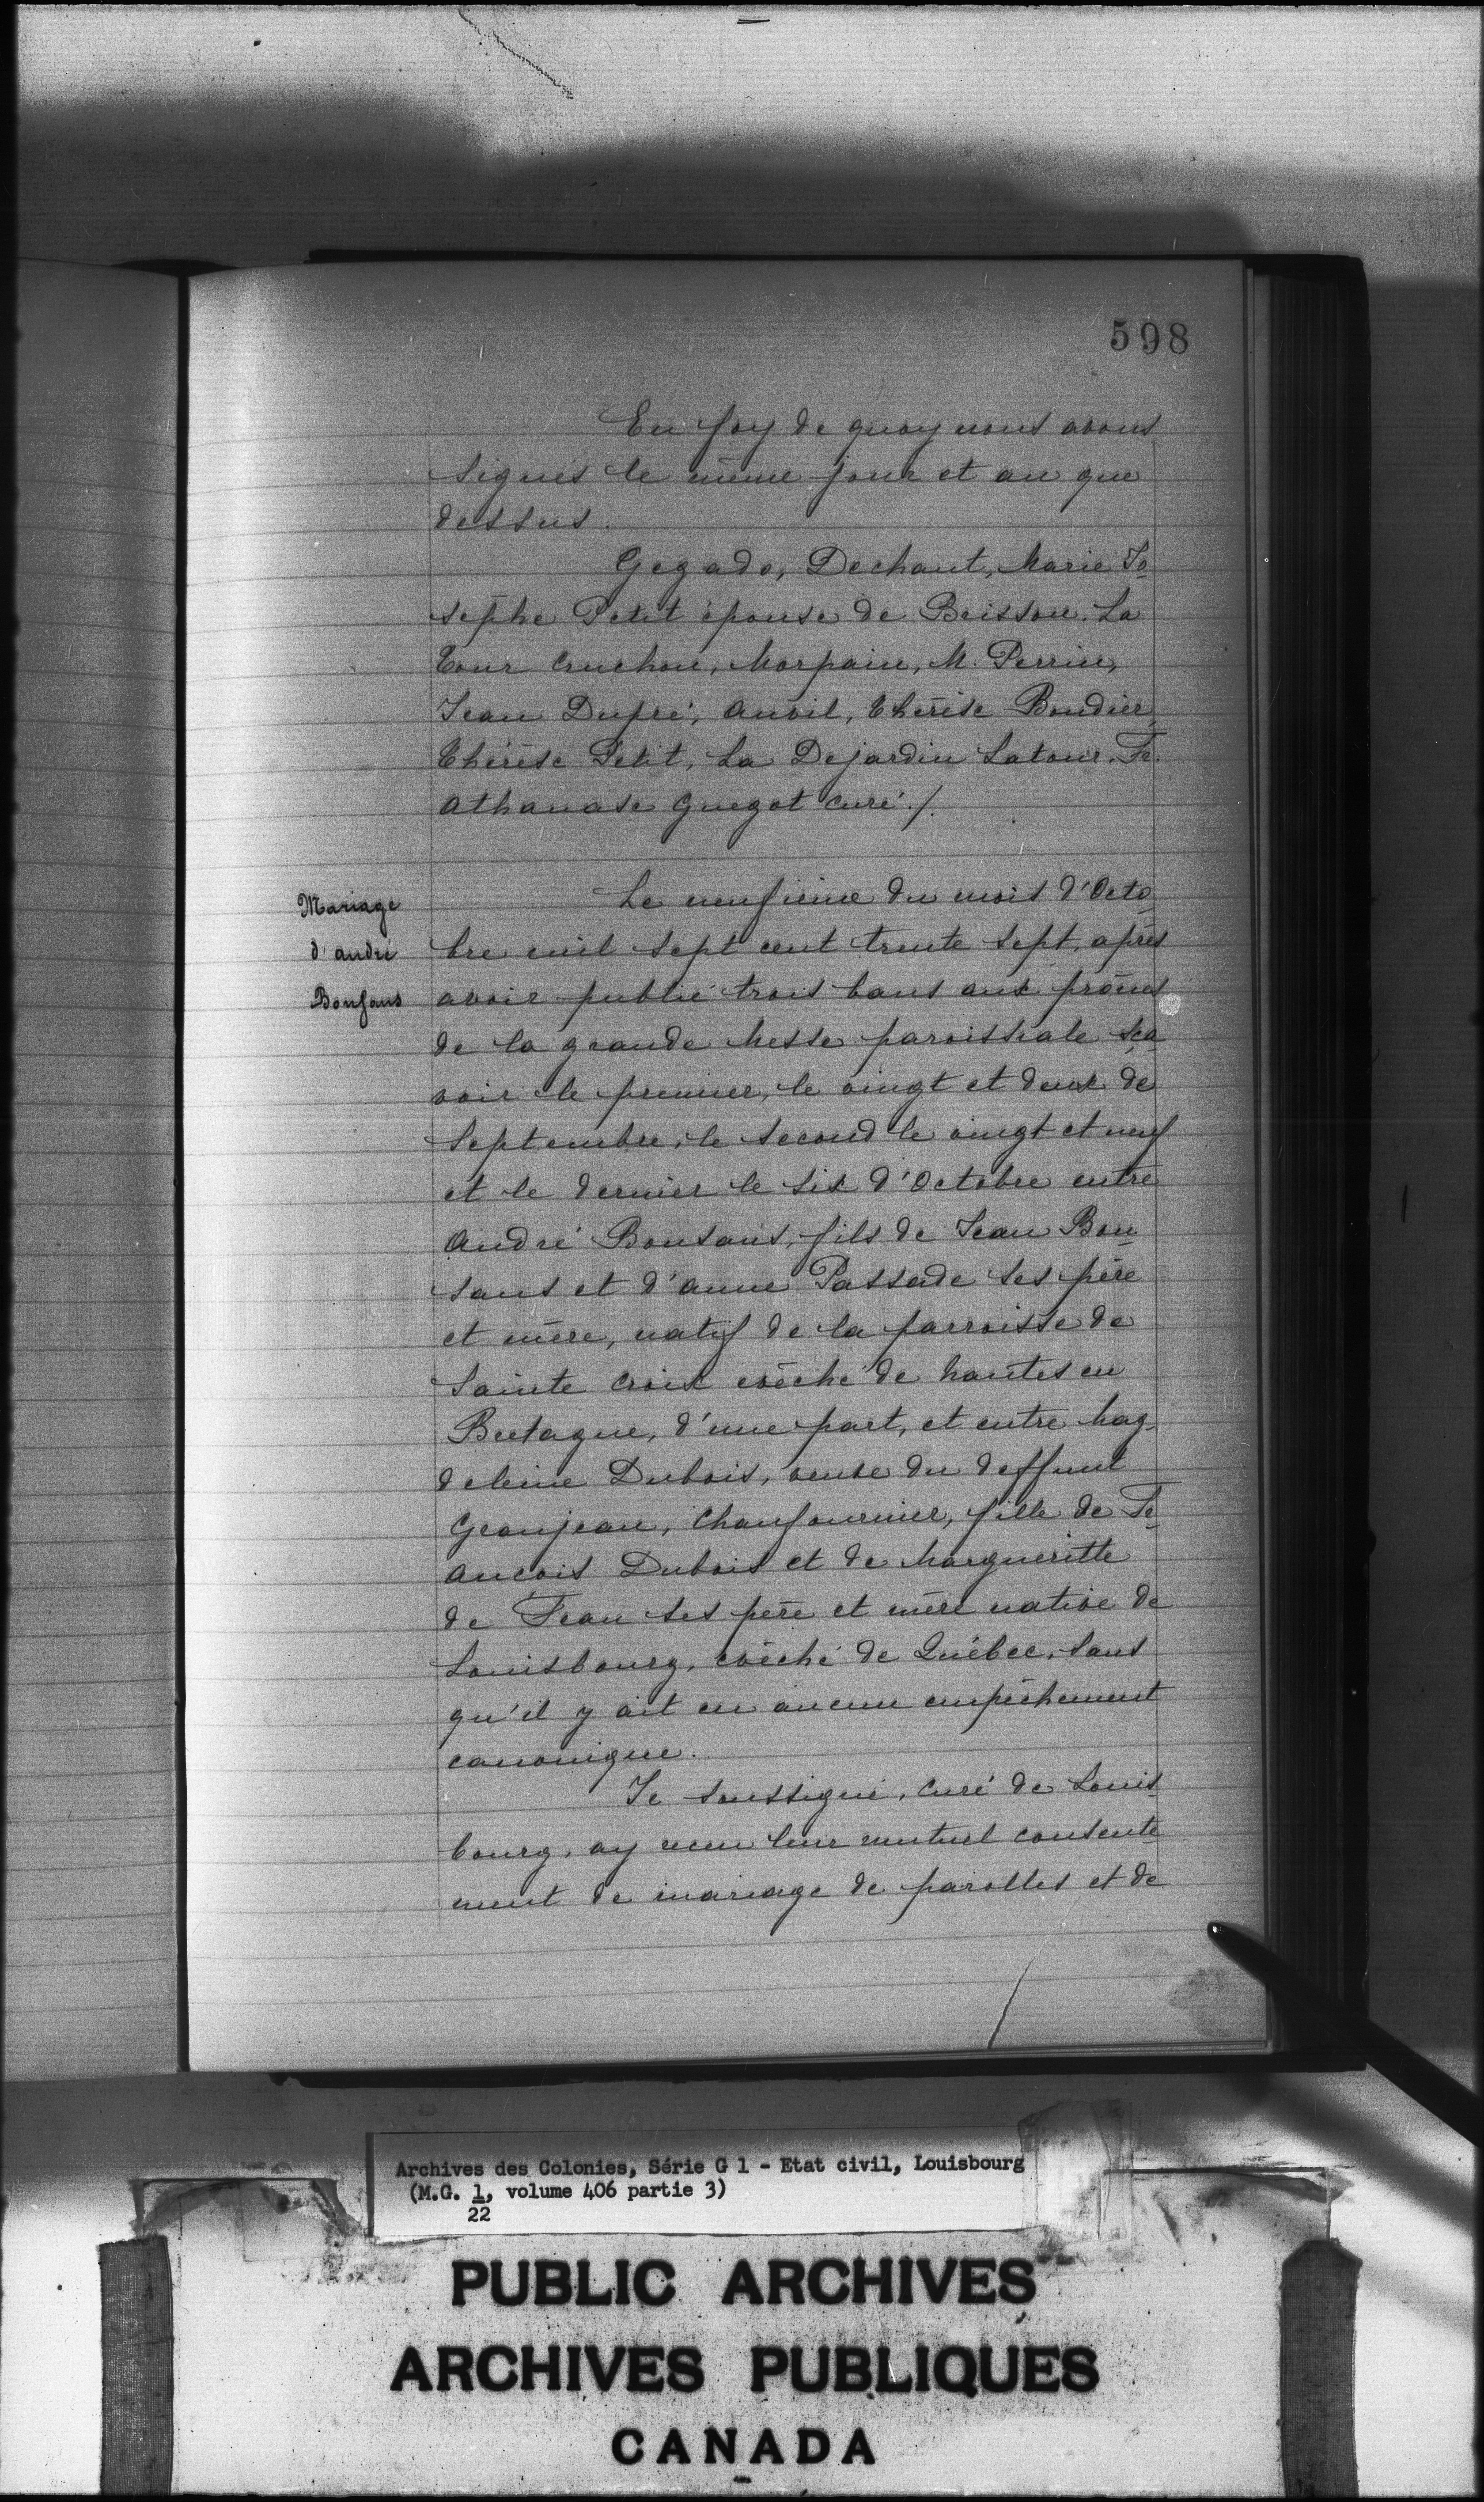 598
En foy de quoy nous avons
signés le même jour et an que
dessus.
Gegado, Dechant, Marie Jo
sephe Petit épouse de Brisson. La
Tour Cruchon, Morpain, M. Perrin,
Jean Dupré, Auvil, Thérèse Boudier,
Thérèse Petit, La Dejardin Latour. Fr.
Athanase Guegot curé./.
Mariage
d'andré
Bonfans
Le neufième du mois d'Octo
bre mil sept cent trente sept, après
avoir publié trois bans aux prônes
de la grande Messe paroissiale sça
voir le premier, le vingt et deux de
Septembre, le second le vingt et neuf
et le dernier le six d'Octobre entre
André Bonsans, fils de Jean Bon
sans et d'Anne Passade ses père
et mère, natif de la parroisse de
Sainte Croix evêché de Nantes en
Bretagne, d'une part, et entre Mag
deleine Dubois, veuve du deffunt
Granjean, Chaufournier, fille de Fr
ancois Dubois et de Margueritte
de Jean ses père et mère native de
Louisbourg, evêché de Québec, sans
qu'il y ait eu aucun empêchement
canonique.
Je soussigné, curé de Louis
bourg, ay reçu leur mutuel consente
ment de mariage de parolles et de
Archives des Colonies, Série G 1 - Etat civil, Louisbourg
(M.G. 1, volume 406 partie 3)
22
PUBLIC ARCHIVES
ARCHIVES PUBLIQUES
CANADA